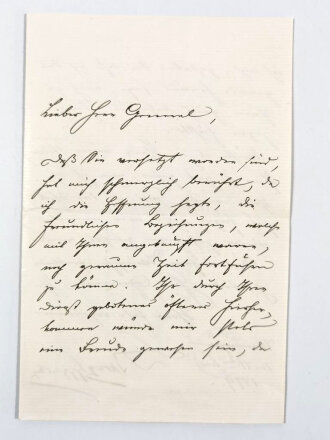 Lieber Herr General,
Daß Sie versetzt worden sind,
hat mich schmerzlich berührt, da
ich die Hoffnung hegte, die
freundlichen Beziehungen, welche
mit Ihnen angeknüpft waren,
noch geraume Zeit fortführen
zu können. Ihr durch Ihren
Dienst gebotenes öfteres Hierher-
kommen würde mir stets
eine Freude gewesen sein, da